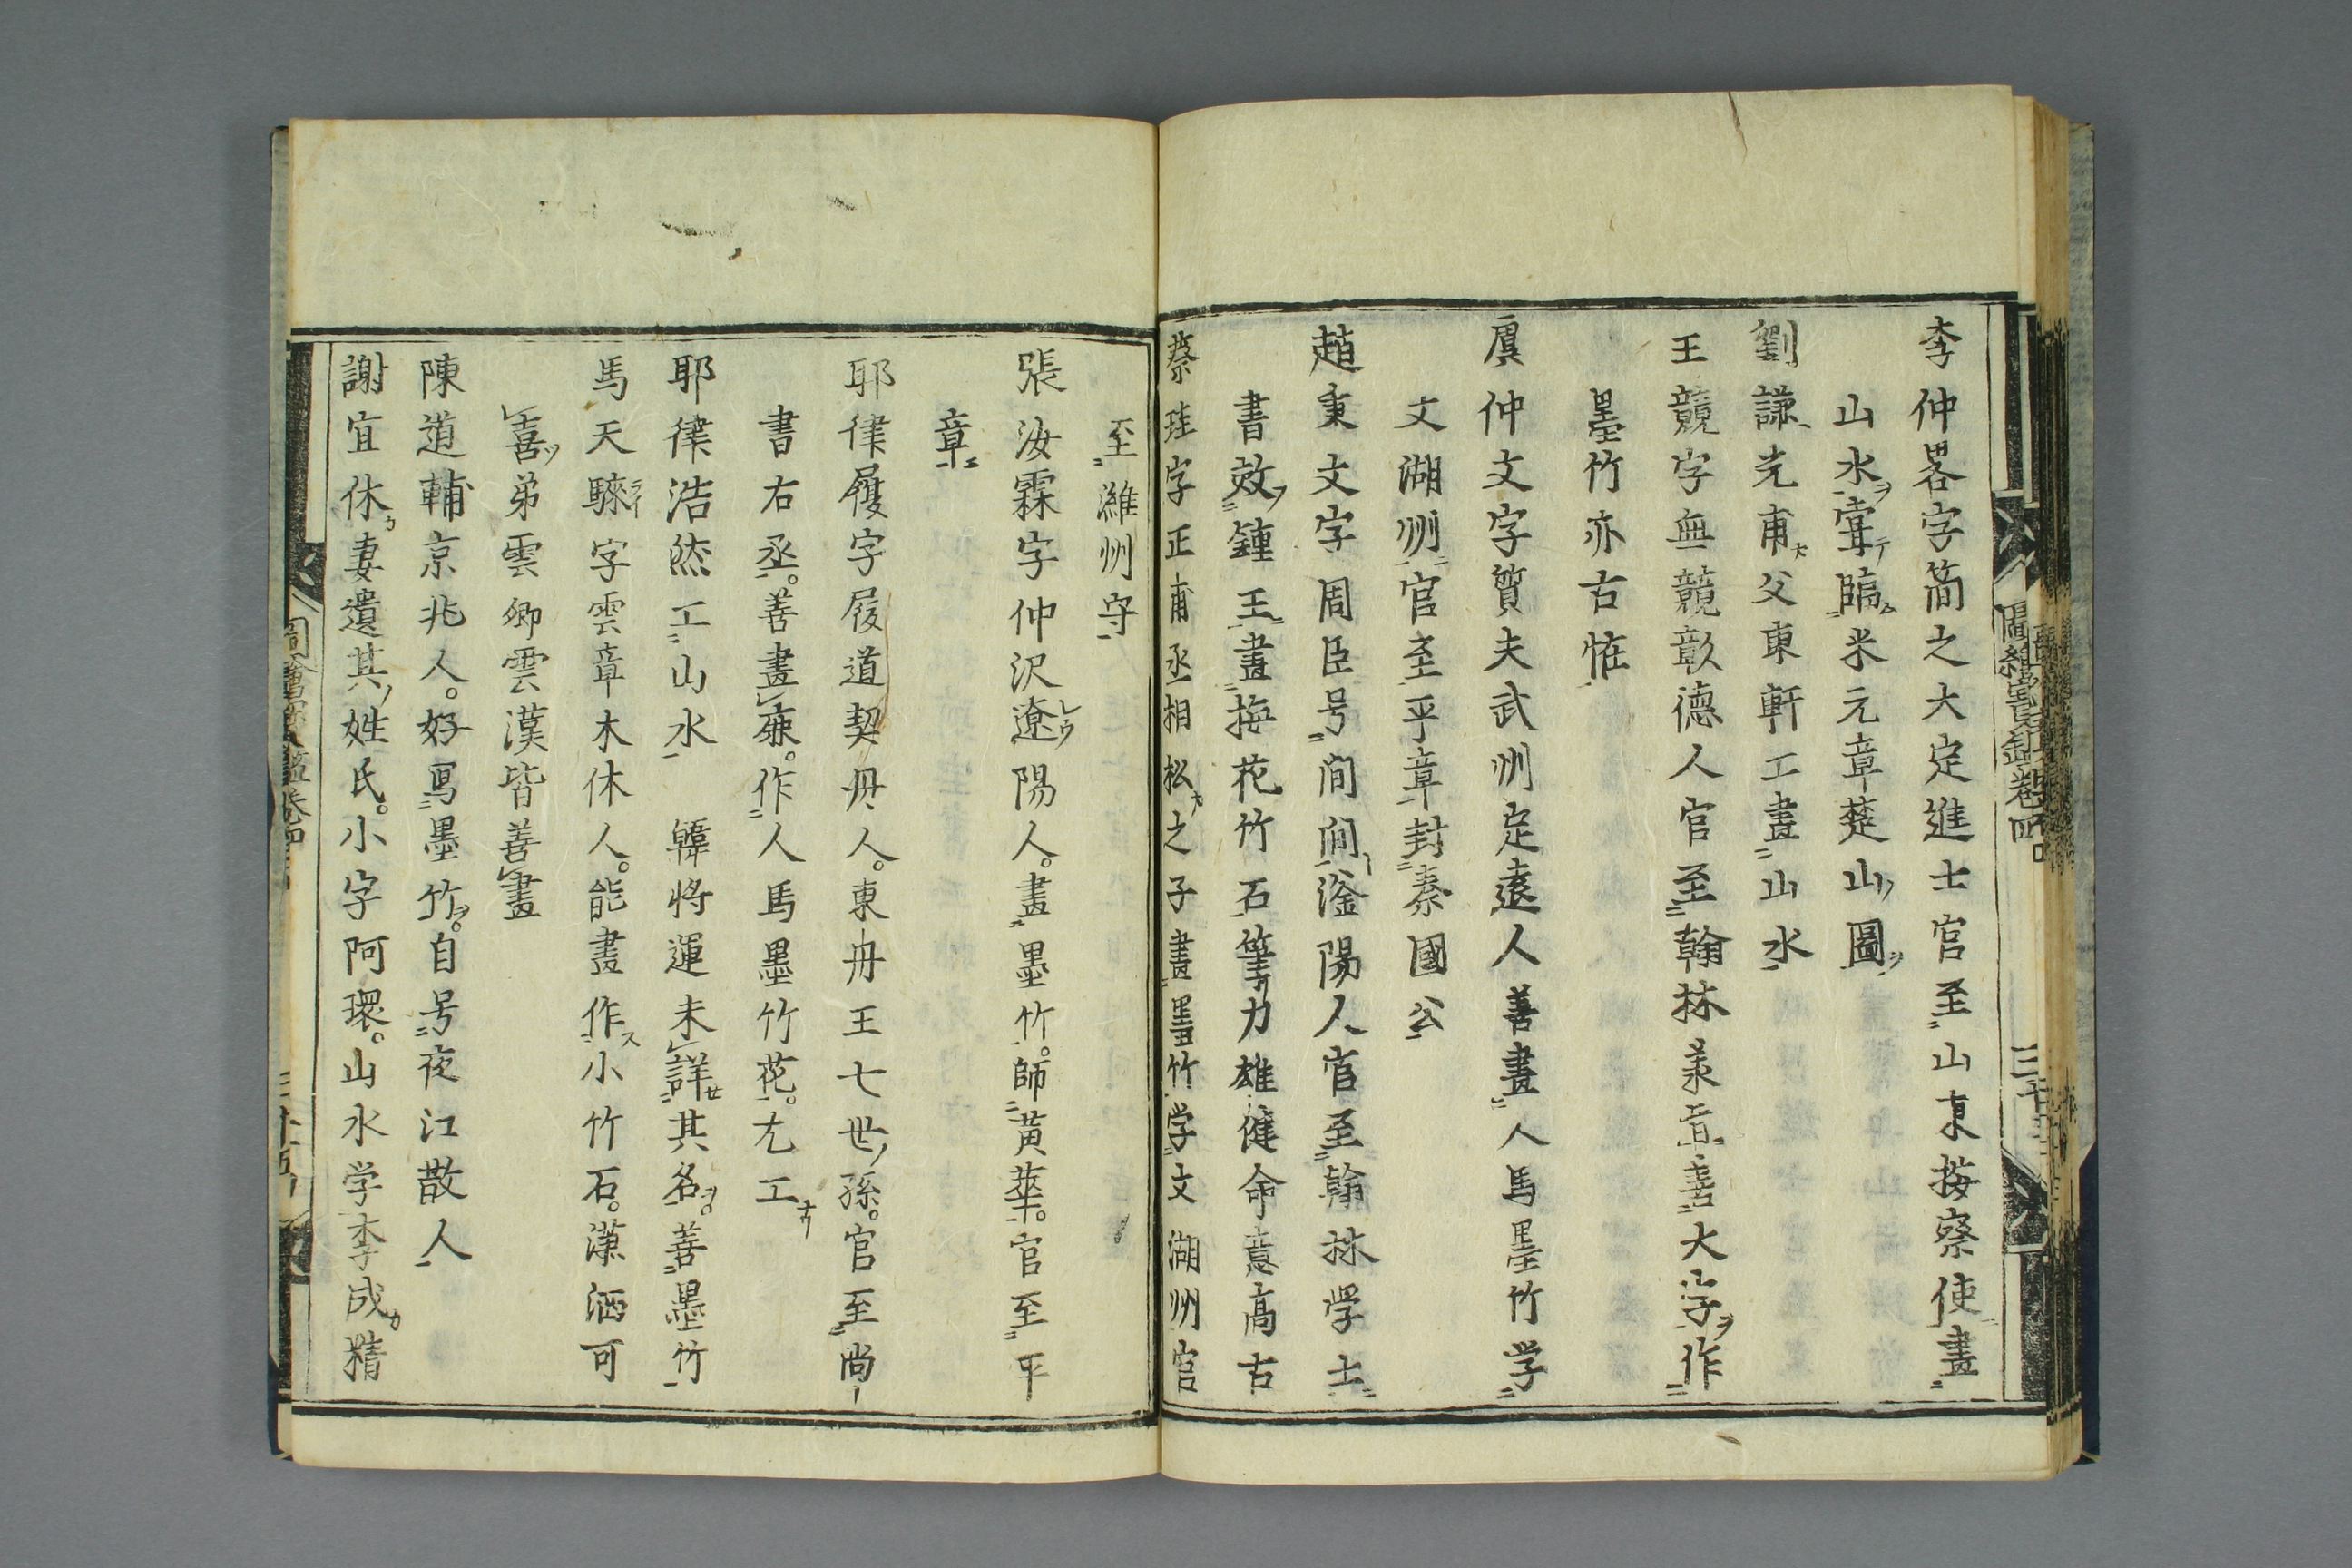 李仲畧字簡之大定進士官至山東按察使畫
山水甞臨米元章楚山圖
劉謙光甫父東軒工畫山水
王競字無競彰德人官至翰林承旨善大字作
墨竹亦古怪
虞仲文字質夫武州定遠人善畫人馬墨竹学
文湖州官至平章封秦國公
趙秉文字周臣号閑閑滏陽人官至翰林学士
書效鍾王畫梅花竹石筆力雄健命意高古
蔡珪字正甫丞相松之子畫墨竹学文湖州官
至濰州守
張汝霖字仲沢遼陽人。畫墨竹。師黃華。官至平
章
耶律履字履道契丹人。東丹王七世孫。官至尚
書右丞。善畫鹿。作人馬墨竹花。尤工
耶律浩然工山水　韓將運未詳其名。善墨竹
馬天騋字雲章木休人。能畫作小竹石。瀟洒可
喜弟雲卿雲漢皆善畫
陳道輔京兆人。好寫墨竹。自号夜江散人
謝宜休妻遺其姓氏。小字阿環。山水学李成精